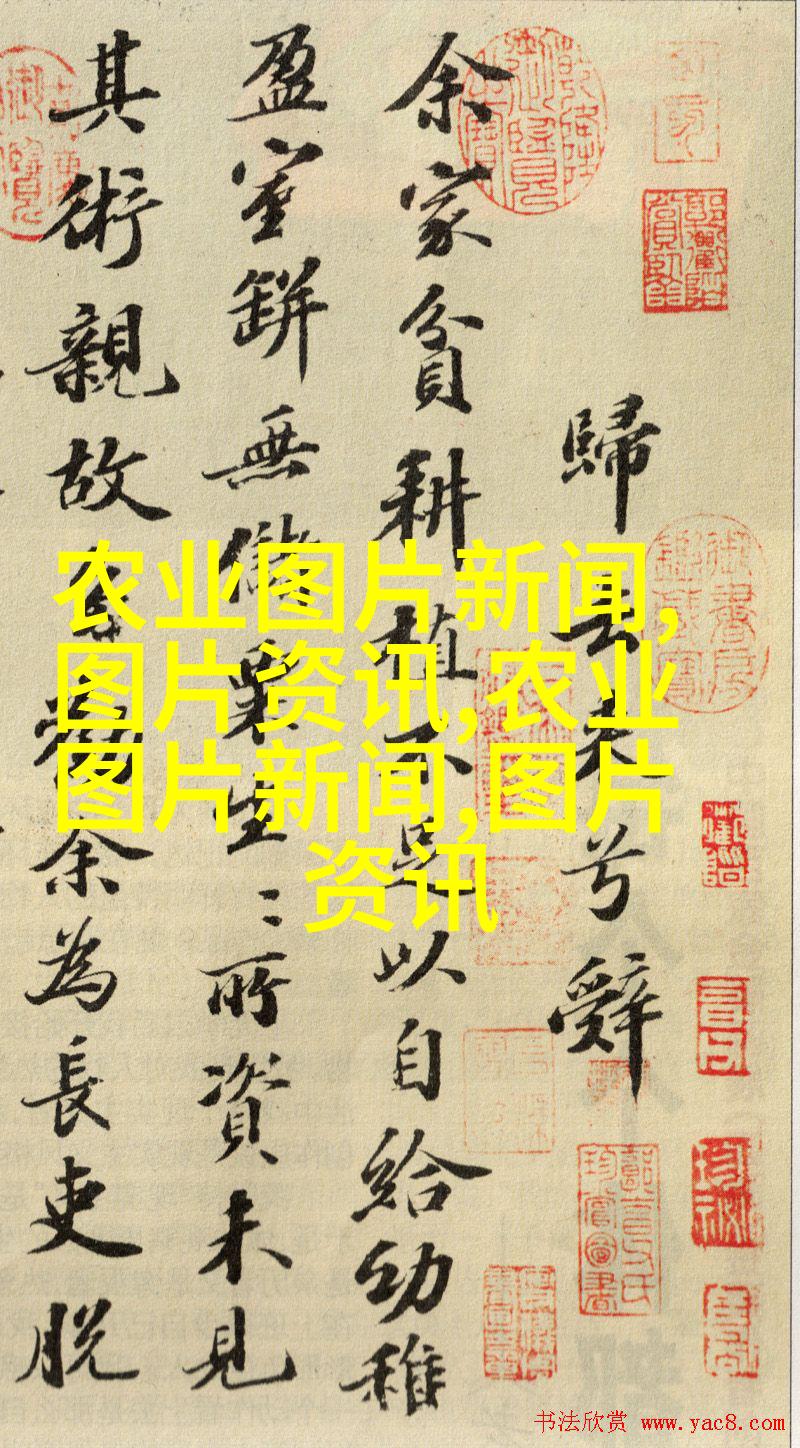 歸去来兮辭
余家貧耕植不足以自給幼稚
盈室缾無儲粟生〻所資未見
其術親故多勸余為長吏脱
农业图片新闻,
图片资讯,农业
图片新闻,图片
资讯
书法欣赏 www.yac8.com